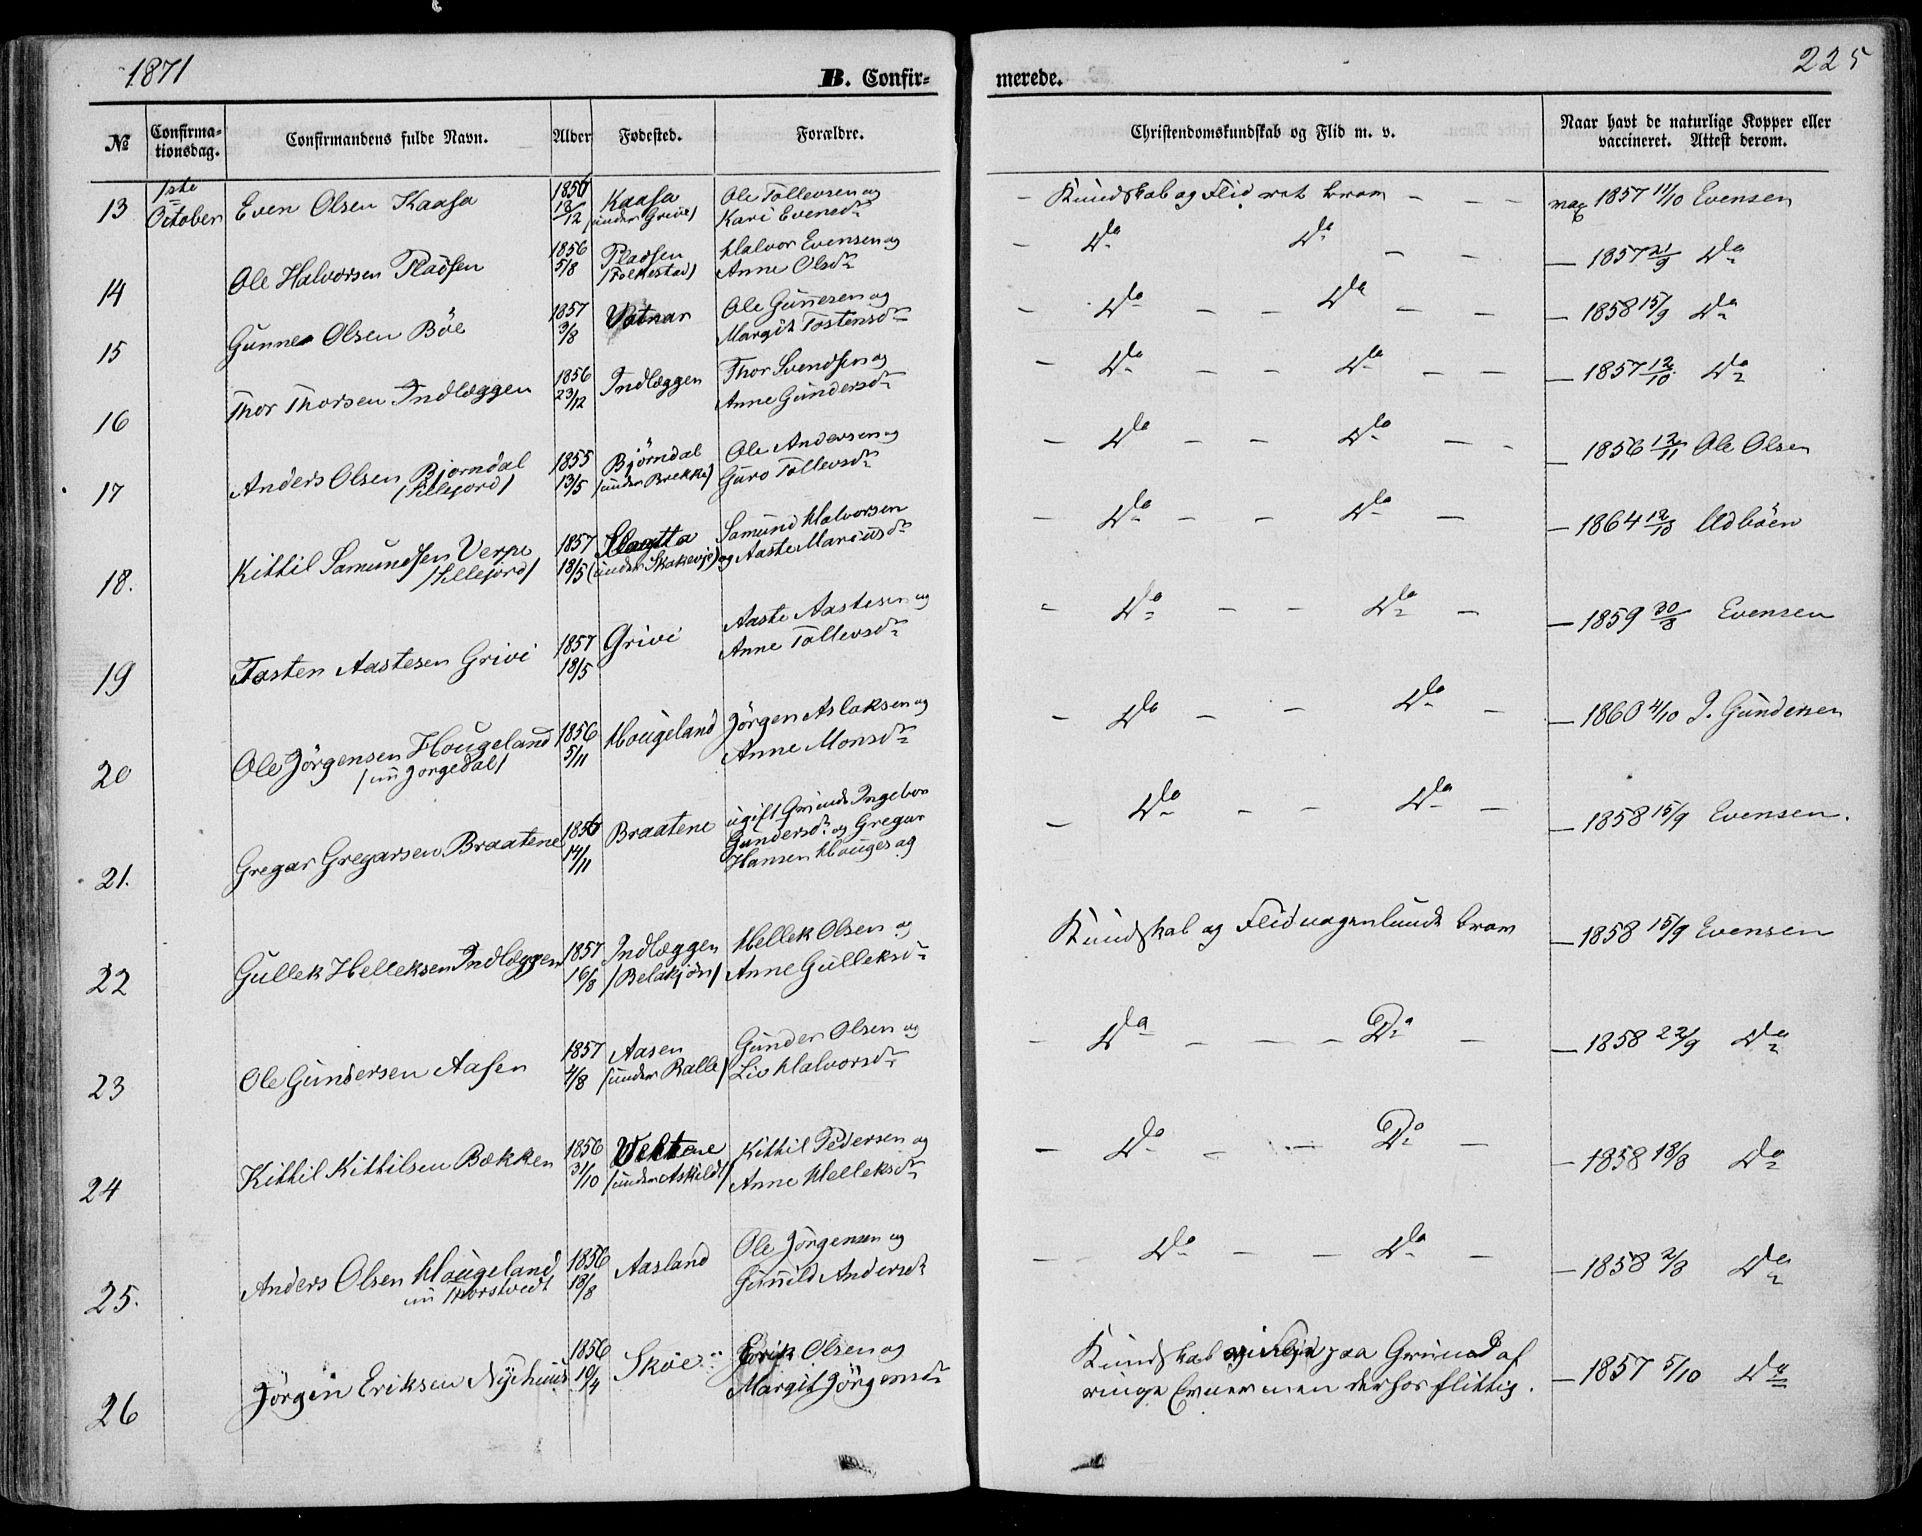 1871
B. Confir-
merede.
225
№
Confirma-
tionsdag.
Confirmandens fulde Navn.
Alder
Fødested.
Forældre.
Christendomskundskab og Flid m. v.
Naar havt de naturlige Kopper eller
vaccineret. Attest derom.
13 1ste October Even Olsen Kaasa 1856 18/12 Kaasa (under Grivi) Ole Tollevsen og Kari Evensdr
— Kundskab og Flid ret bram — — — vac 1857 11/10 Evensen
14 Ole Halvorsen Pladsen 1856 5/8 Pladsen (Folkestad) Halvor Evensen og Anne Olsdr
— Do Do — — — 1857 21/9 Do
15 Gunner Olsen Bøe 1857 3/8 Vatnar Ole Gunnersen og Margit Tostensdr
— Do — — Do — — — 1858 15/9 Do
16 Thor Thorsen Indlæggen 1856 23/12 Indlæggen Thor Svendsen og Anne Gundersdr
— Do — — Do — — — 1857 12/10 Do
17 Anders Olsen Bjørndal (Sillejord) 1855 13/5 Bjørndal (under Brekke) Ole Andersen og Guro Tollevsdr
— Do — — Do — — — 1856 12/11 Ole Olsen
18. Kittil Samundsen Verpe (Sillejord) 1857 18/5 (under Skakevje) Samund Halvorsen og Aaste Mariusdr
— Do — — Do — — 1864 12/10 Udbøen
19 Tosten Aastesen Grivi 1857 18/5 Grivi Aaste Aastesen og Anne Tollevsdr
— Do — — Do — — 1859 30/8 Evensen
20 Ole Jörgensen Hougeland (nu Jorgedal) 1856 5/11 Hougeland Jörgen Aslaksen og Anne Monsdr
— Do — — Do — — 1860 4/10 J. Gundersen
21. Gregar Gregarsen Braatene 1856 14/11 Braatene ugift Qvinde Ingebor Gundersdr og Gregar Hansen Houges ag
— Do — — Do — — 1858 15/9 Evensen.
22 Gullek Helleksen Indlæggen 1857 16/8 Indlæggen (Belakjøn) Hellek Olsen og Anne Gulleksdr
Kundskab og Flid nogenlunde bram — 1858 15/9 Evensen
23 Ole Gundersen Aasen 1857 4/8 Aasen (under Balle) Gunder Olsen og Liv Halvorsdr
— Do — — — Do — — 1858 22/9 Do
24 Kittil Kittilsen Bækken 1856 31/10 (under Askildt) Kittil Pedersen og Anne Helleksdr
— Do — — Do — — 1858 18/8 Do
25. Anders Olsen Hougeland nu Thorstvedt 1856 18/8 Aasland Ole Jörgensen og Gunild Andersdr
— Do — — Do — — 1858 2/8 Do
26 Jörgen Eriksen Nyehuus 1856 10/4 Skoe Erik Olsen og Margit Jörgensdr
Kundskab ringe paa Grund af
ringe Evner men derhos flittig. — 1857 5/10 Do